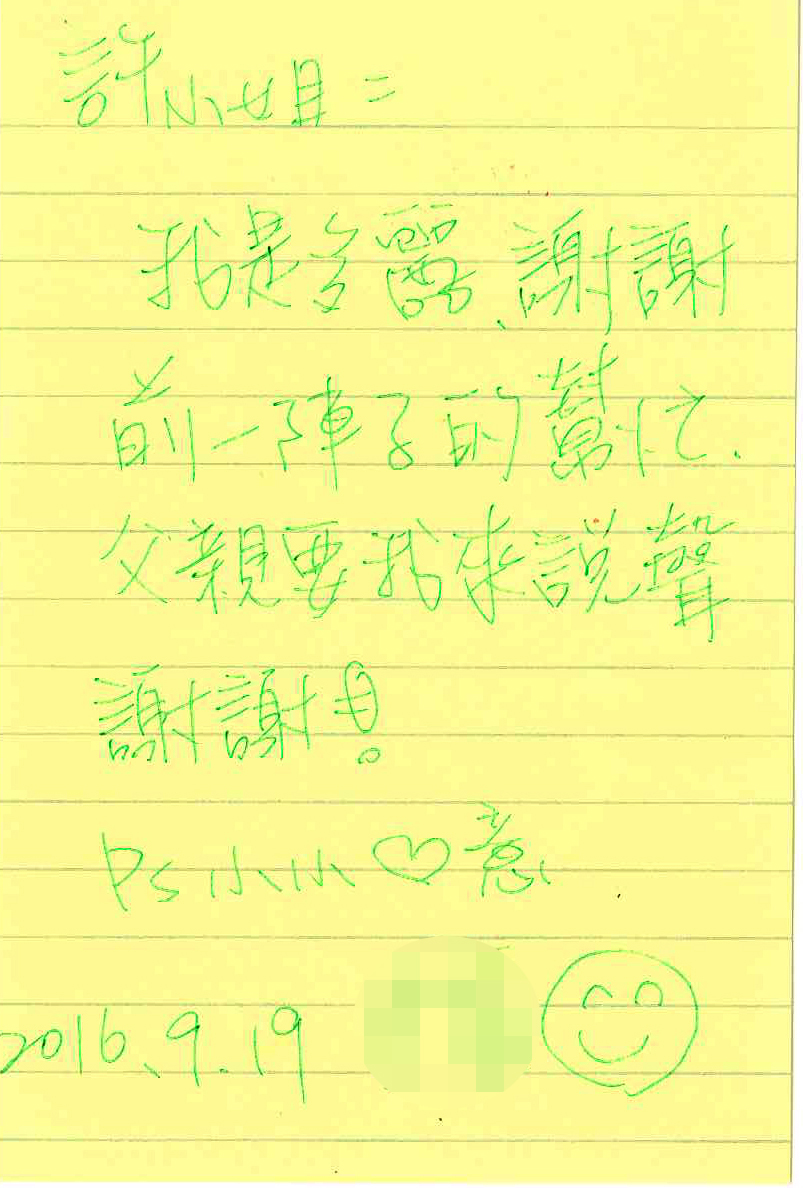 許小姐：
我是多露，謝謝
前一陣子的幫忙.
父親要我來說聲
謝謝！
Ps 小小♡意
2016、9.19